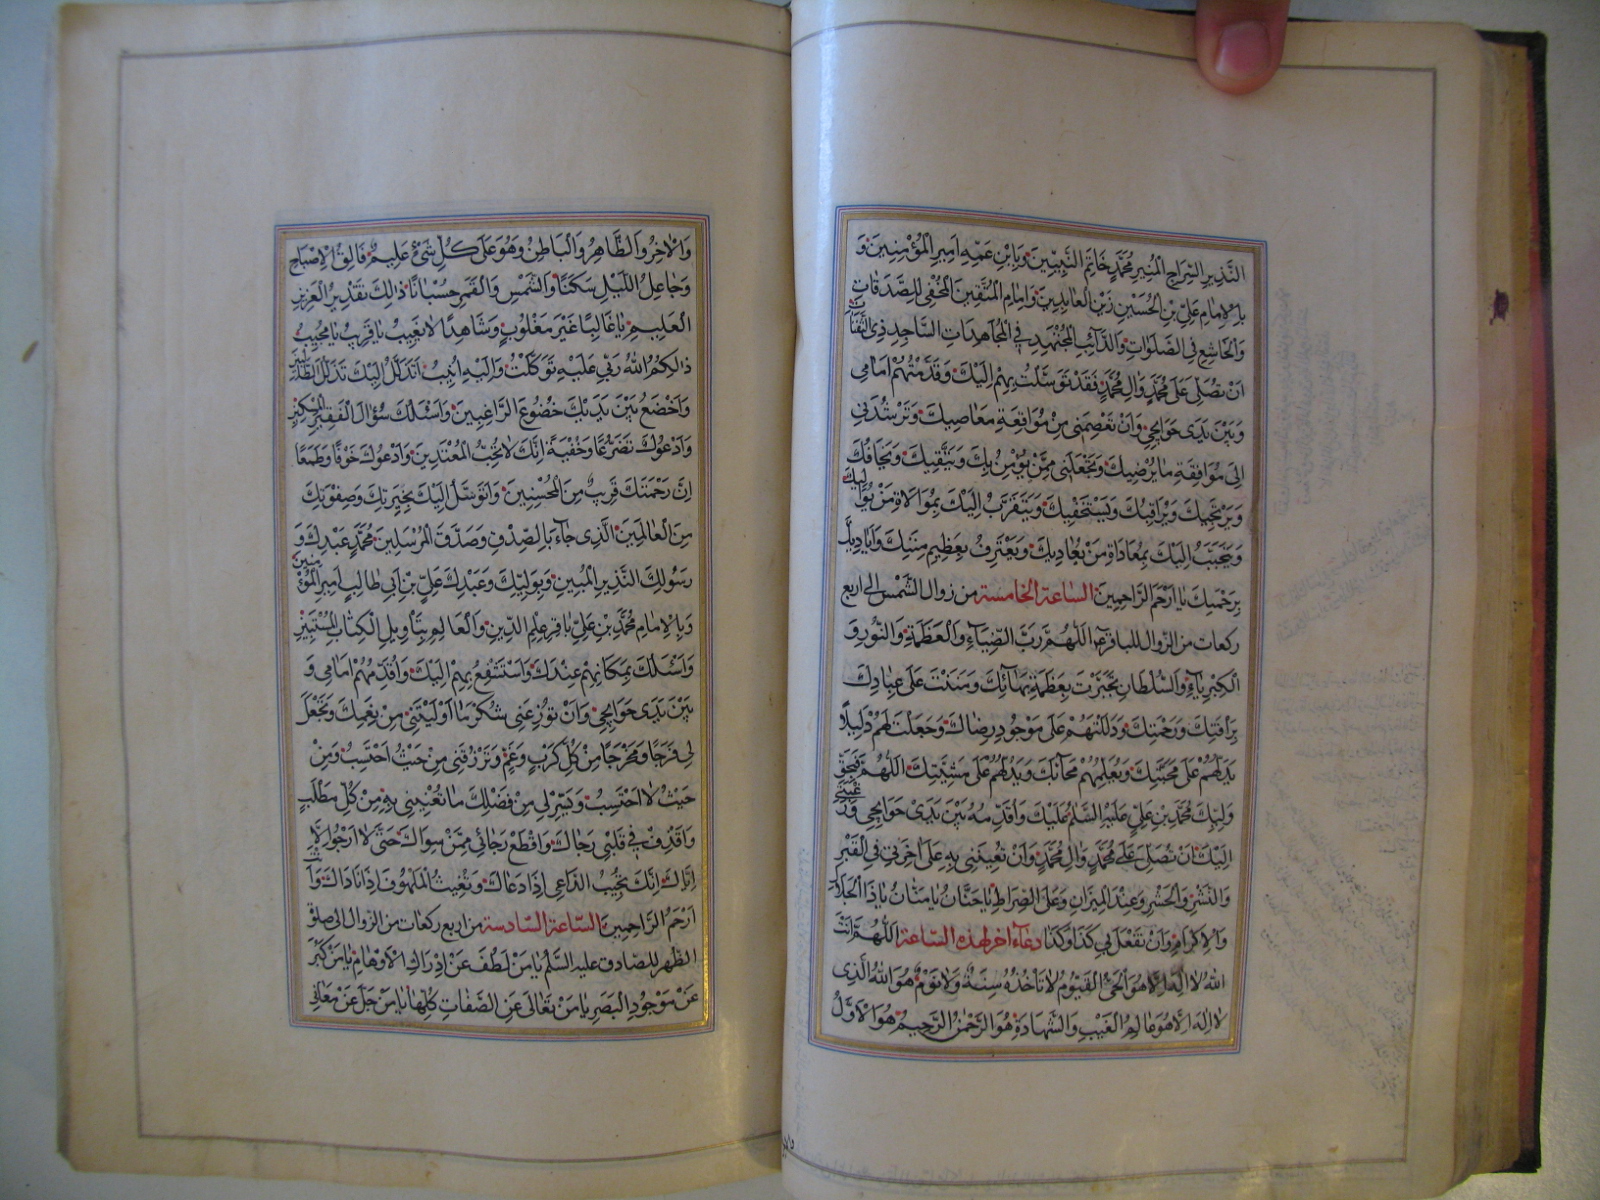 النَّذِيرِ السِّرَاجِ الْمُنِيرِ مُحَمَّدٍ خَاتَمِ النَّبِيِّينَ وَبِابْنِ عَمِّهِ اَمِيرِ الْمُؤْمِنِينَ وَ
بِالْاِمَامِ عَلِيِّ بْنِ الْحُسَيْنِ زَيْنِ الْعَابِدِينَ وَاِمَامِ الْمُتَّقِينَ الْمُخْفِي لِلصَّدَقَاتِ
وَالْخَاشِعِ فِي الصَّلَوَاتِ وَالدَّائِبِ الْمُجْتَهِدِ فِي الْمُجَاهِدَاتِ السَّاجِدِ ذِي الثَّفَنَاتِ
اَنْ تُصَلِّيَ عَلَى مُحَمَّدٍ وَالِ مُحَمَّدٍ فَقَدْ تَوَسَّلْتُ بِهِمْ اِلَيْكَ وَقَدَّمْتُهُمْ اَمَامِي
وَبَيْنَ يَدَيْ حَوَائِجِي وَاَنْ تَعْصِمَنِي مِنْ مُوَاقِعَةِ مَعَاصِيكَ وَتُرْشِدَنِي
اِلَى مُوَافِقَةِ مَا يُرْضِيكَ وَتَجْعَلَنِي مِمَّنْ يُؤْمِنُ بِكَ وَيَتَّقِيكَ وَيَخَافُكَ
وَيَرْتَجِيكَ وَيُرَاقِبُكَ وَيَسْتَخْفِيكَ وَيَتَقَرَّبُ اِلَيْكَ بِمُوَالَاةِ مَنْ يُوَالِيكَ
وَيَتَحَبَّبُ اِلَيْكَ بِمُعَادَاةِ مَنْ يُعَادِيكَ وَيَعْتَرِفُ بِعَظِيمِ مِنَنِكَ وَاَيَادِيكَ
بِرَحْمَتِكَ يَا اَرْحَمَ الرَّاحِمِينَ السَّاعَة الْخَامِسَة من زوال الشَّمْس الى اربع
ركعات من الزوال للباقر ع اَللّٰهُمَّ رَبَّ الضِّيَاءِ وَالْعَظَمَةِ وَالنُّورِ وَ
الْكِبْرِيَاءِ وَالسُّلْطَانِ تَجَبَّرْتَ بِعَظَمَةِ بَهَائِكَ وَمَنَنْتَ عَلَى عِبَادِكَ
بِرَأْفَتِكَ وَرَحْمَتِكَ وَدَلَلْتَهُمْ عَلَى مَوْجُودِ رِضَاكَ وَجَعَلْتَ لَهُمْ دَلِيلًا
يَدُلُّهُمْ عَلَى مَحَبَّتِكَ وَيُعَلِّمُهُمْ مَحَابَّكَ وَيَدُلُّهُمْ عَلَى مَشِيَّتِكَ اَللّٰهُمَّ فَبِحَقِّ
وَلِيِّكَ مُحَمَّدِ بْنِ عَلِيٍّ عَلَيْهِ السَّلَمُ عَلَيْكَ وَاُقَدِّمُهُ بَيْنَ يَدَيْ حَوَائِجِي وَرَغْبَتِي
اِلَيْكَ اَنْ تُصَلِّيَ عَلَى مُحَمَّدٍ وَالِ مُحَمَّدٍ وَاَنْ تُعِينَنِي بِهِ عَلَى اٰخِرَتِي فِي الْقَبْرِ
وَالنَّشْرِ وَالْحَشْرِ وَعِنْدَ الْمِيزَانِ وَعَلَى الصِّرَاطِ يَا حَنَّانُ يَا مَنَّانُ يَا ذَا الْجَلَالِ
وَالْاِكْرَامِ وَاَنْ تَفْعَلَ بِي كَذَا وَكَذَا دعاء اخر لهذه السّاعة اَللّٰهُمَّ اَنْتَ
اللهُ لَا اِلٰهَ اِلَّا هُوَ الْحَيُّ الْقَيُّومُ لَا تَأْخُذُهُ سِنَةٌ وَلَا نَوْمٌ هُوَ اللهُ الَّذِي
لَا اِلٰهَ اِلَّا هُوَ عَالِمُ الْغَيْبِ وَالشَّهَادَةِ هُوَ الرَّحْمٰنُ الرَّحِيمُ هُوَ الْاَوَّلُ
وَالْاٰخِرُ وَالظَّاهِرُ وَالْبَاطِنُ وَهُوَ عَلَى كُلِّ شَيْءٍ عَلِيمٌ فَالِقُ الْاِصْبَاحِ
وَجَاعِلُ اللَّيْلِ سَكَنًا وَالشَّمْسِ وَالْقَمَرِ حُسْبَانًا ذَالِكَ تَقْدِيرُ الْعَزِيزِ
الْعَلِيمِ يَا غَالِبًا غَيْرَ مَغْلُوبٍ وَشَاهِدًا لَا يَغِيبُ يَا قَرِيبُ يَا مُجِيبُ
ذَالِكُمُ اللهُ رَبِّي عَلَيْهِ تَوَكَّلْتُ وَاِلَيْهِ اُنِيبُ اَتَذَلَّلُ اِلَيْكَ تَذَلُّلَ الطَّالِبِينَ
وَاَخْضَعُ بَيْنَ يَدَيْكَ خُضُوعَ الرَّاغِبِينَ وَاَسْئَلُكَ سُؤَالَ الْفَقِيرِ الْمِسْكِينِ
وَاَدْعُوكَ تَضَرُّعًا وَخُفْيَةً اِنَّكَ لَا تُحِبُّ الْمُعْتَدِينَ وَاَدْعُوكَ خَوْفًا وَطَمَعًا
اِنَّ رَحْمَتَكَ قَرِيبٌ مِنَ الْمُحْسِنِينَ وَاَتَوَسَّلُ اِلَيْكَ بِخِيَرَتِكَ وَصِفْوَتِكَ
مِنَ الْعَالَمِينَ الَّذِي جَاءَ بِالصِّدْقِ وَصَدَّقَ الْمُرْسَلِينَ مُحَمَّدٍ عَبْدِكَ وَ
رَسُولِكَ النَّذِيرِ الْمُبِينِ وَبِوَلِيِّكَ وَعَبْدِكَ عَلِيِّ بْنِ اَبِي طَالِبٍ اَمِيرِ الْمُؤْمِنِينَ
وَبِالْاِمَامِ مُحَمَّدِ بْنِ عَلِيٍّ بَاقِرِ عِلْمِ الدِّينِ وَالْعَالِمِ بِتَأْوِيلِ الْكِتَابِ الْمُسْتَبِينِ
وَاَسْئَلُكَ بِمَكَانِهِمْ عِنْدَكَ وَاَسْتَشْفِعُ بِهِمْ اِلَيْكَ وَاُقَدِّمُهُمْ اَمَامِي وَ
بَيْنَ يَدَيْ حَوَائِجِي وَاَنْ تُوزِعَنِي شُكْرَ مَا اَوْلَيْتَنِي مِنْ نِعَمِكَ وَتَجْعَلَ
لِي فَرَجًا وَمَخْرَجًا مِنْ كُلِّ كَرْبٍ وَغَمٍّ وَتَرْزُقَنِي مِنْ حَيْثُ اَحْتَسِبُ وَمِنْ
حَيْثُ لَا اَحْتَسِبُ وَيَسِّرْ لِي مِنْ فَضْلِكَ مَا تُغْنِينِي بِهِ مِنْ كُلِّ مَطْلَبٍ
وَاقْذِفْ فِي قَلْبِي رَجَاكَ وَاقْطَعْ رَجَائِي مِمَّنْ سِوَاكَ حَتَّى لَا اَرْجُوَ اِلَّا
اِيَّاكَ اِنَّكَ تُجِيبُ الدَّاعِيَ اِذَا دَعَاكَ وَتُغِيثُ الْمَلْهُوفَ اِذَا نَادَاكَ وَاَنْتَ
اَرْحَمُ الرَّاحِمِينَ السّاعة السّادسة من اربع ركعات من الزوال الى صلوة
الظهر للصادق عليه السّلم يَا مَنْ لَطُفَ عَنْ اِدْرَاكِ الْاَوْهَامِ يَا مَنْ كَبُرَ
عَنْ مَوْجُودِ الْبَصَرِ يَا مَنْ تَعَالَى عَنِ الصِّفَاتِ كُلِّهَا يَا مَنْ جَلَّ عَنْ مَعَانِي